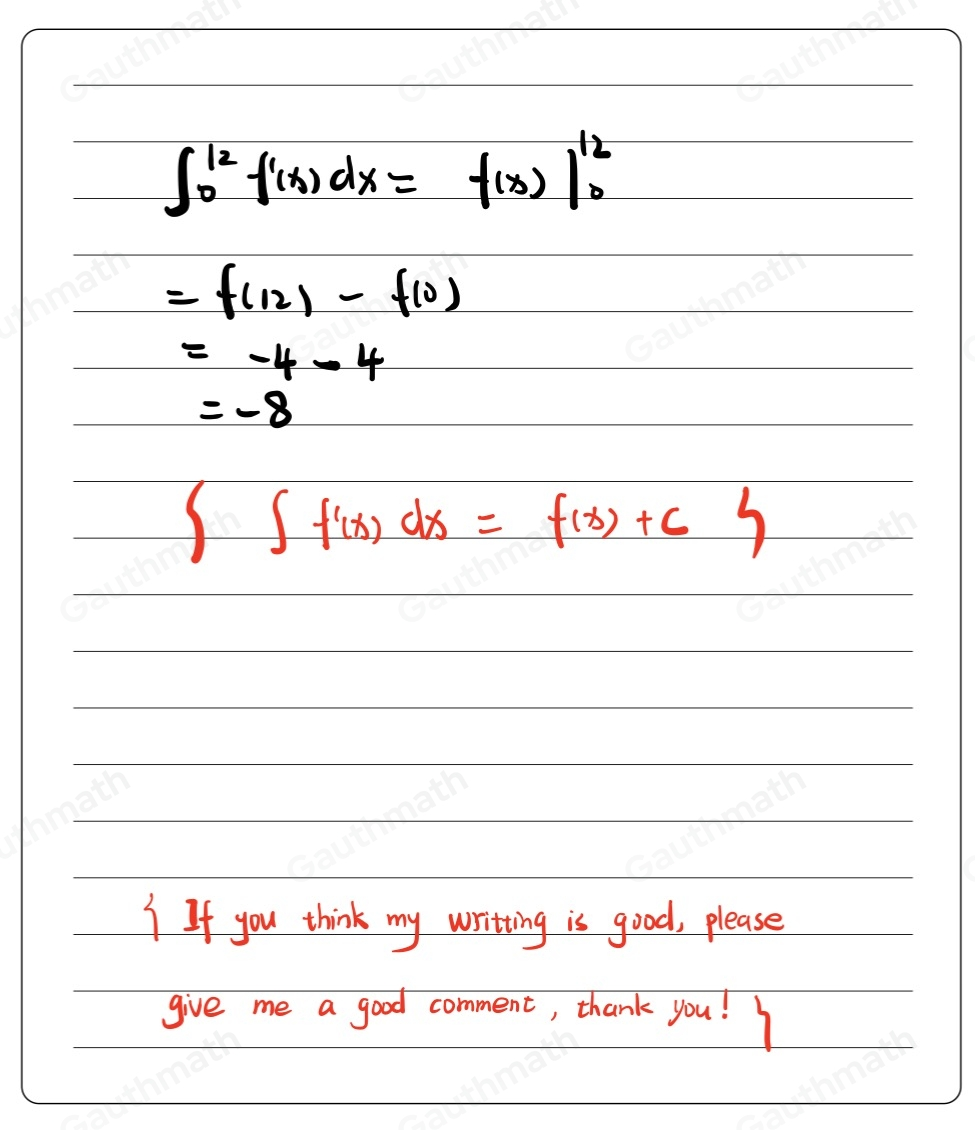 ∫₀¹² f'(x) dx = f(x) |₀¹²
= f(12) - f(0)
= -4 - 4
= -8
{ ∫ f'(x) dx = f(x) + C }
{ If you think my writting is good, please
give me a good comment, thank you! }